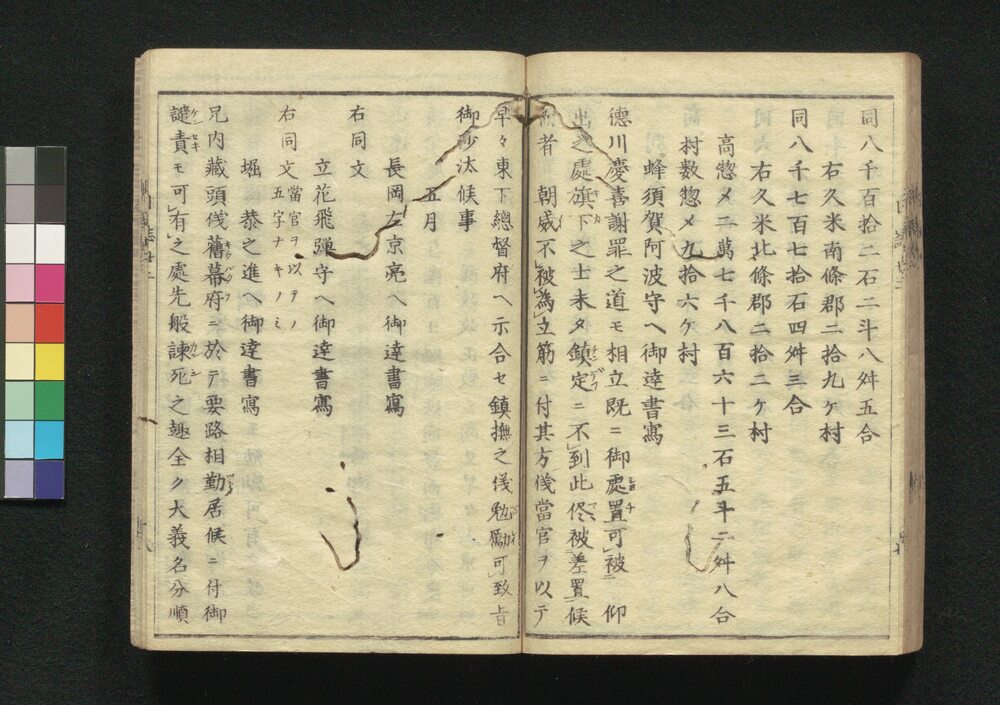 同八千百拾二石二斗八舛五合
右久米南條郡二拾九ケ村
同八千七百七拾石四舛三合
右久米北條郡二拾二ケ村
高惣メ二萬七千八百六十三石五斗二舛八合
村数惣メ九拾六ケ村
蜂須賀阿波守ヘ御達書寫
德川慶喜謝罪之道モ相立既ニ御處置可被仰
出之處旗下之士未タ鎮定ニ不到此侭被差置候
而者 朝威不被為立筋ニ付其方儀當官ヲ以テ
早々東下總督府ヘ示合セ鎮撫之儀勉勵可致旨
御沙汰候事
五月
長岡左京亮ヘ御達書寫
右同文
立花飛彈守ヘ御達書寫
右同文當官ヲ以テノ五字ナキノミ
堀 恭之進ヘ御達書寫
兄内藏頭儀舊幕府ニ於テ要路相勤居候ニ付御
譴責モ可有之處先般諫死之趣全ク大義名分順